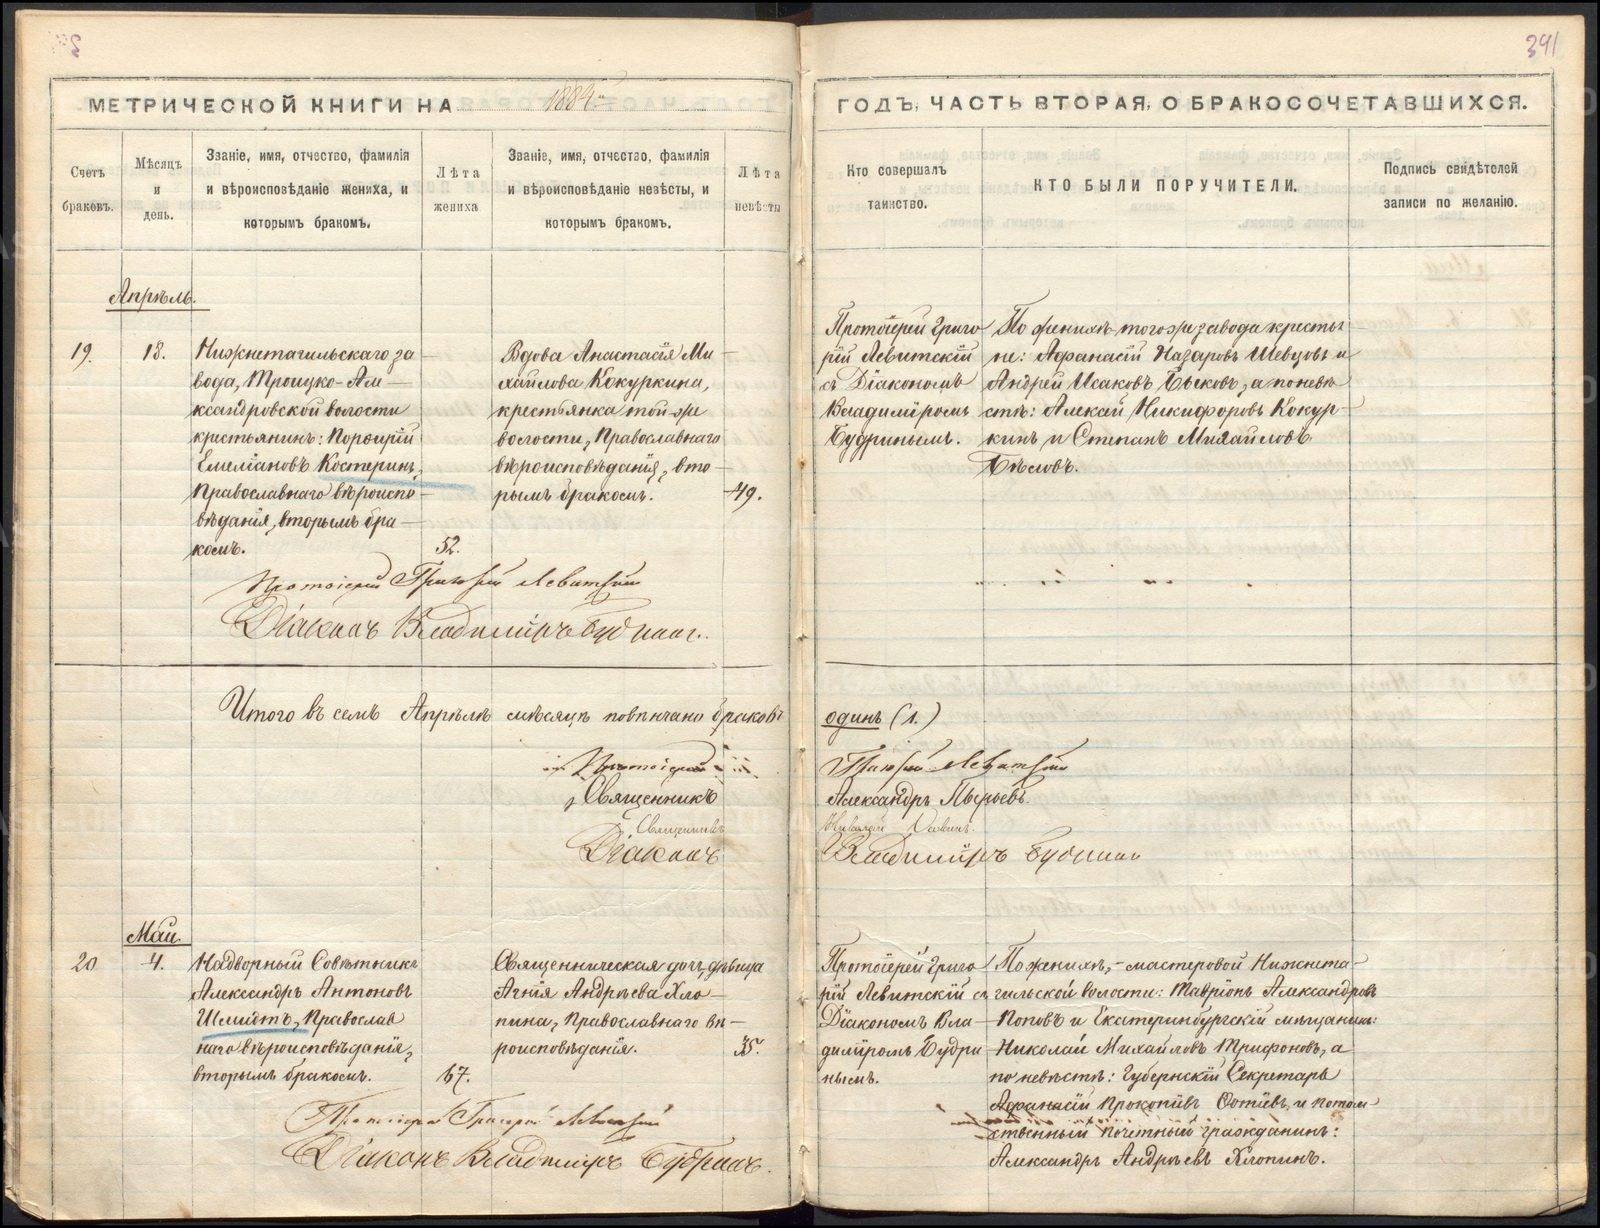 391
МЕТРИЧЕСКОЙ КНИГИ НА 1884
ГОДЪ, ЧАСТЬ ВТОРАЯ, О БРАКОСОЧЕТАВШИХСЯ.
Счетъ
браковъ.
Мѣсяцъ
и
день.
Званіе, имя, отчество, фамилія
и вѣроисповѣданіе жениха, и
которымъ бракомъ.
Лѣта
жениха
Званіе, имя, отчество, фамилія
и вѣроисповѣданіе невѣсты, и
которымъ бракомъ.
Лѣта
невѣсты
Кто совершалъ
таинство.
КТО БЫЛИ ПОРУЧИТЕЛИ.
Подпись свидѣтелей
записи по желанію.
Апрѣль.
19.
18.
Нижнетагильскаго за
вода, Троицко-Але
ксандровской волости
крестьянинъ: Порфирій
Емеліановъ Костеринъ,
Православнаго вѣроиспо
вѣданія, вторымъ бра
комъ.
52.
Вдова Анастасія Ми
хайлова Кокуркина,
крестьянка той-же
волости, Православнаго
вѣроисповѣданія, вто
рымъ бракомъ.
49.
Протоіерей Григо
рій Левитскій
съ Діакономъ
Владиміромъ
Будринымъ.
По женихѣ тогоже завода крестья
не: Афанасій Назаровъ Шевцовъ и
Андрей Исаковъ Быковъ, а по невѣ
стѣ: Алексѣй Никифоровъ Кокур
кинъ и Степанъ Михайловъ
Бѣловъ.
Протоіерей Григорій Левитскій
Діаконъ Владиміръ Будринъ.
Итого въ семъ Апрѣлѣ мѣсяцѣ повѣнчано браковъ
одинъ (1.)
Протоіерей Григорій Левитскій
Священникъ Александръ Пырьевъ.
Священникъ
Діаконъ Владиміръ Будринъ
Май.
20
4.
Надворный Совѣтникъ
Александръ Антоновъ
Шмидтъ, Православ
наго вѣроисповѣданія,
вторымъ бракомъ.
67.
Священническая дочь, дѣвица
Агнія Андрѣева Хло
пина, Православнаго вѣ
роисповѣданія.
35.
Протоіерей Григо
рій Левитскій съ
Діакономъ Вла
диміромъ Будри
нымъ.
По женихѣ, - мастеровой Нижнета
гильской волости: Гавріонъ Александровъ
Поповъ и Екатеринбургскій мѣщанинъ:
Николай Михайловъ Трифоновъ, а
по невѣстѣ: Губернскій Секретарь
Афанасій Прокопіевъ Фотіевъ, и потом
ственный почетный гражданинъ:
Александръ Андрѣевъ Хлопинъ.
Протоіерей Григорій Левитскій
Діаконъ Владиміръ Будринъ.